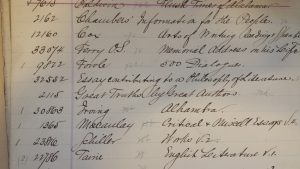 7613 Calhoun
2162 Chambers' Information for the People.
12160 Cox Arts of Writing Reading & Speaking
33074 Ferry O.S. Memorial Address on his Life
1 9122 Foote 500 Dialogue.
32552 Essay contributing to a Philosophy of Literature.
2115 Great Truths by Great Authors
1 30863 Irving Alhambra.
1 1365 Macaulay Critical & Miscell Essays V.
1 23816 Schiller Works V.2
21786 Taine English Literature V.1